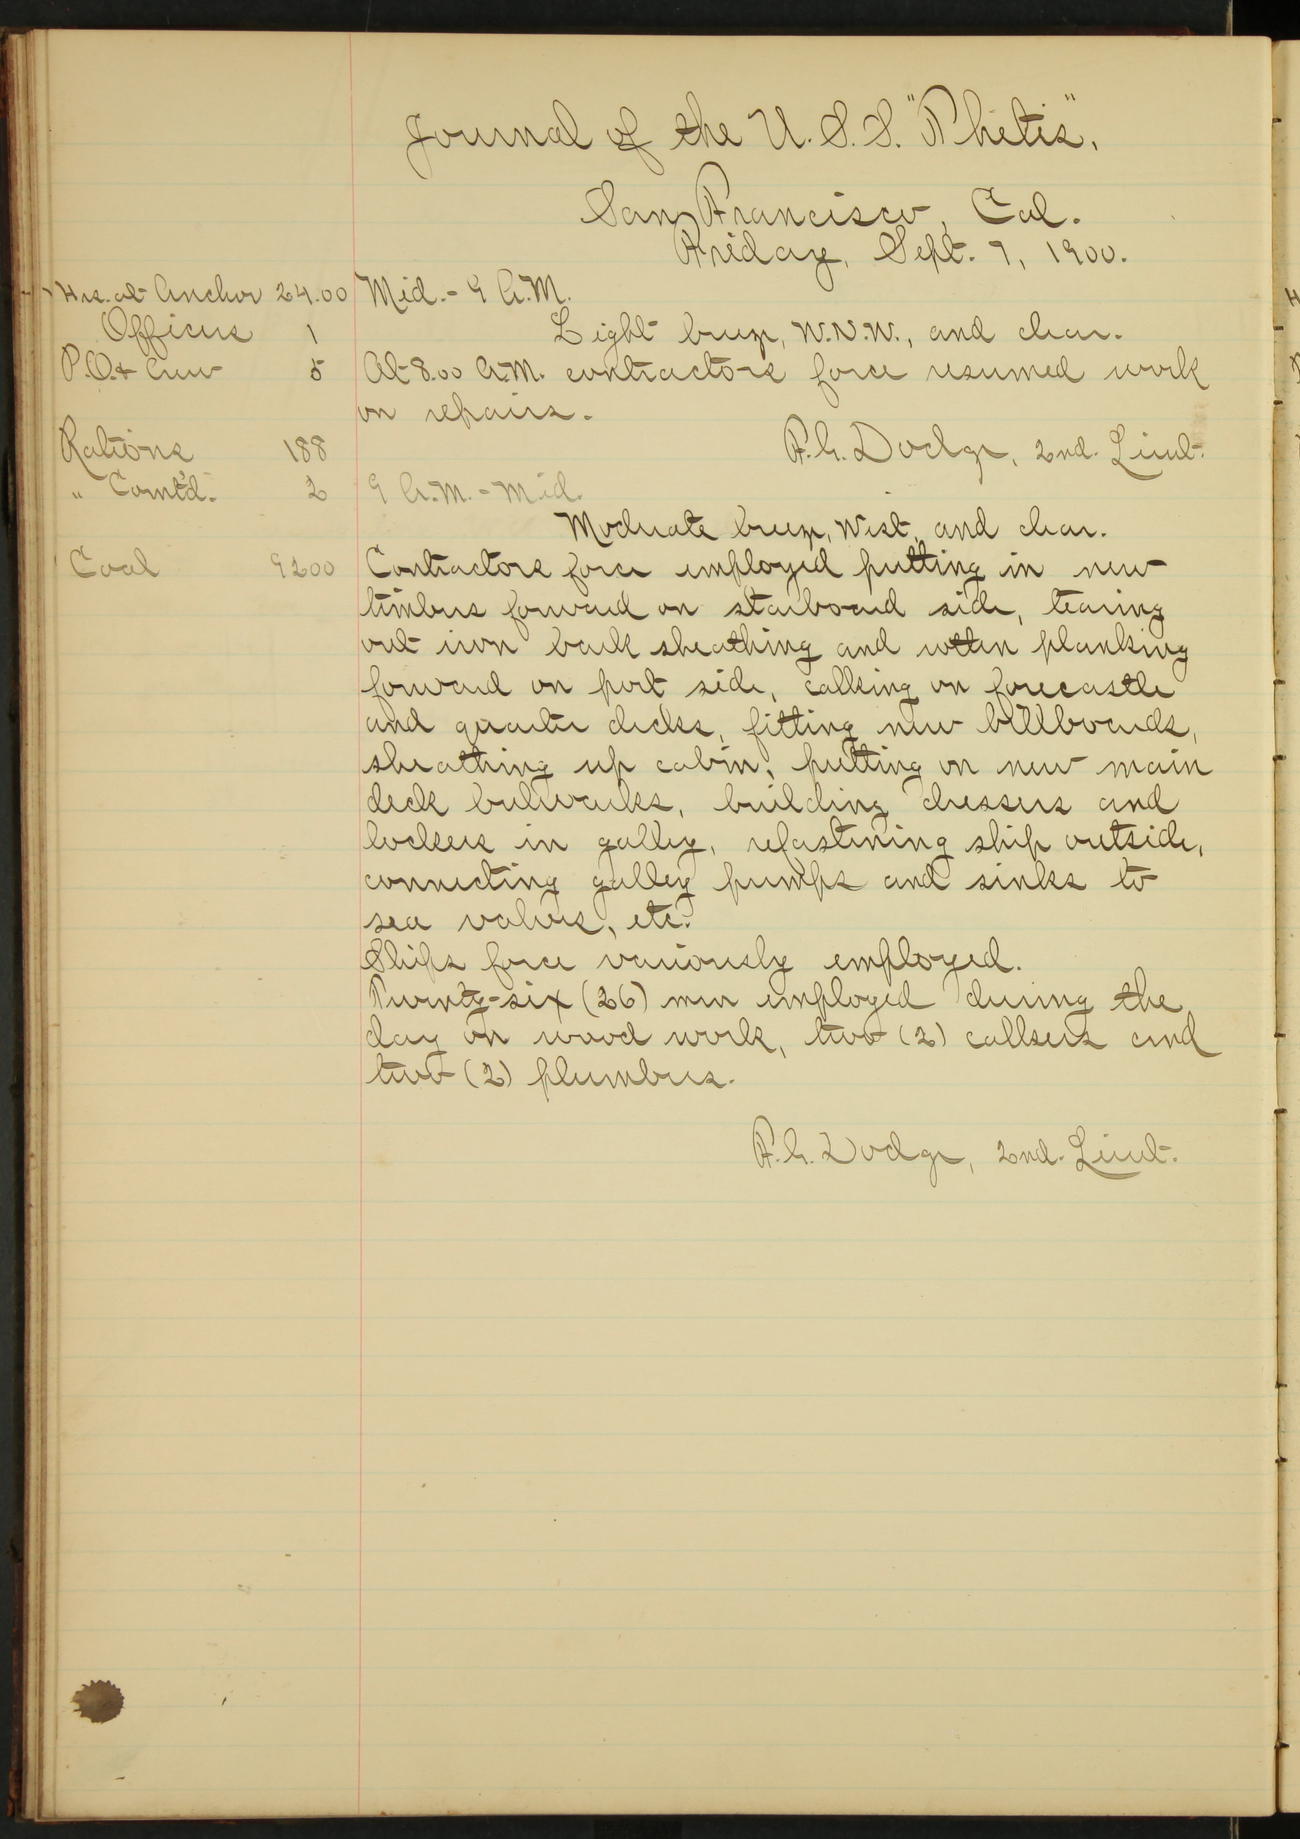 Journal of the U.S.S. "Thetis",
San Francisco, Cal.
Friday, Sept. 7, 1900.
Hrs. at Anchor 24.00
Officers 1
P.O. & Crew 5
Rations 188
" Comt'd. 2
Coal 9200
Mid. - 9 A.M.
Light breeze, W.N.W., and clear.
At 8.00 A.M. contractors force resumed work
on repairs.
F.G. Dodge, 2nd. Lieut.
9 A.M. - Mid.
Moderate breeze, West, and clear.
Contractors force employed putting in new
timbers forward on starboard side, tearing
out iron bark sheathing and rotten planking
forward on port side, calking on forecastle
and quarter decks, fitting new billboards,
sheathing up cabin, putting on new main
deck bulwarks, building dressers and
lockers in galley, refastening ship outside,
connecting galley pumps and sinks to
sea valves, etc.
Ships force variously employed.
Twenty-six (26) men employed during the
day on wood work, two (2) calkers and
two (2) plumbers.
F.G. Dodge, 2nd. Lieut.